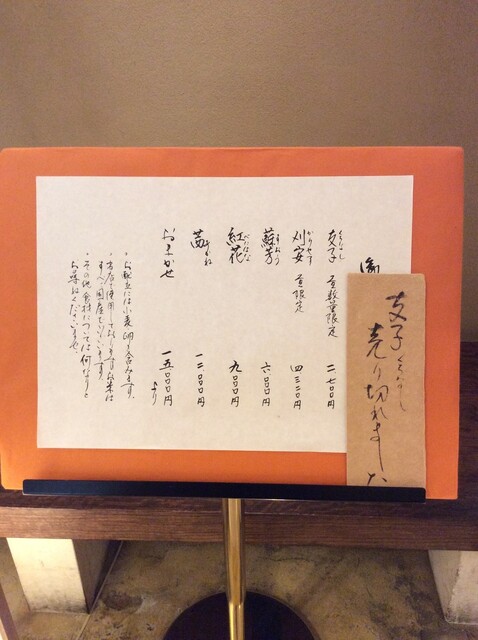 支子 くちなし
売り切れました
支子 くちなし 昼数量限定 二七〇〇円
刈安 かりやす 昼限定 四三二〇円
蘇芳 すおう 六〇〇〇円
紅花 べにばな 九〇〇〇円
茜 あかね 一二〇〇〇円
おまかせ 一五〇〇〇円より
・お献立には小麦、卵を含みます。
・当店で使用しておりますお米は
すべて国産でございます。
・その他食材については何なりと
お尋ねくださいませ。